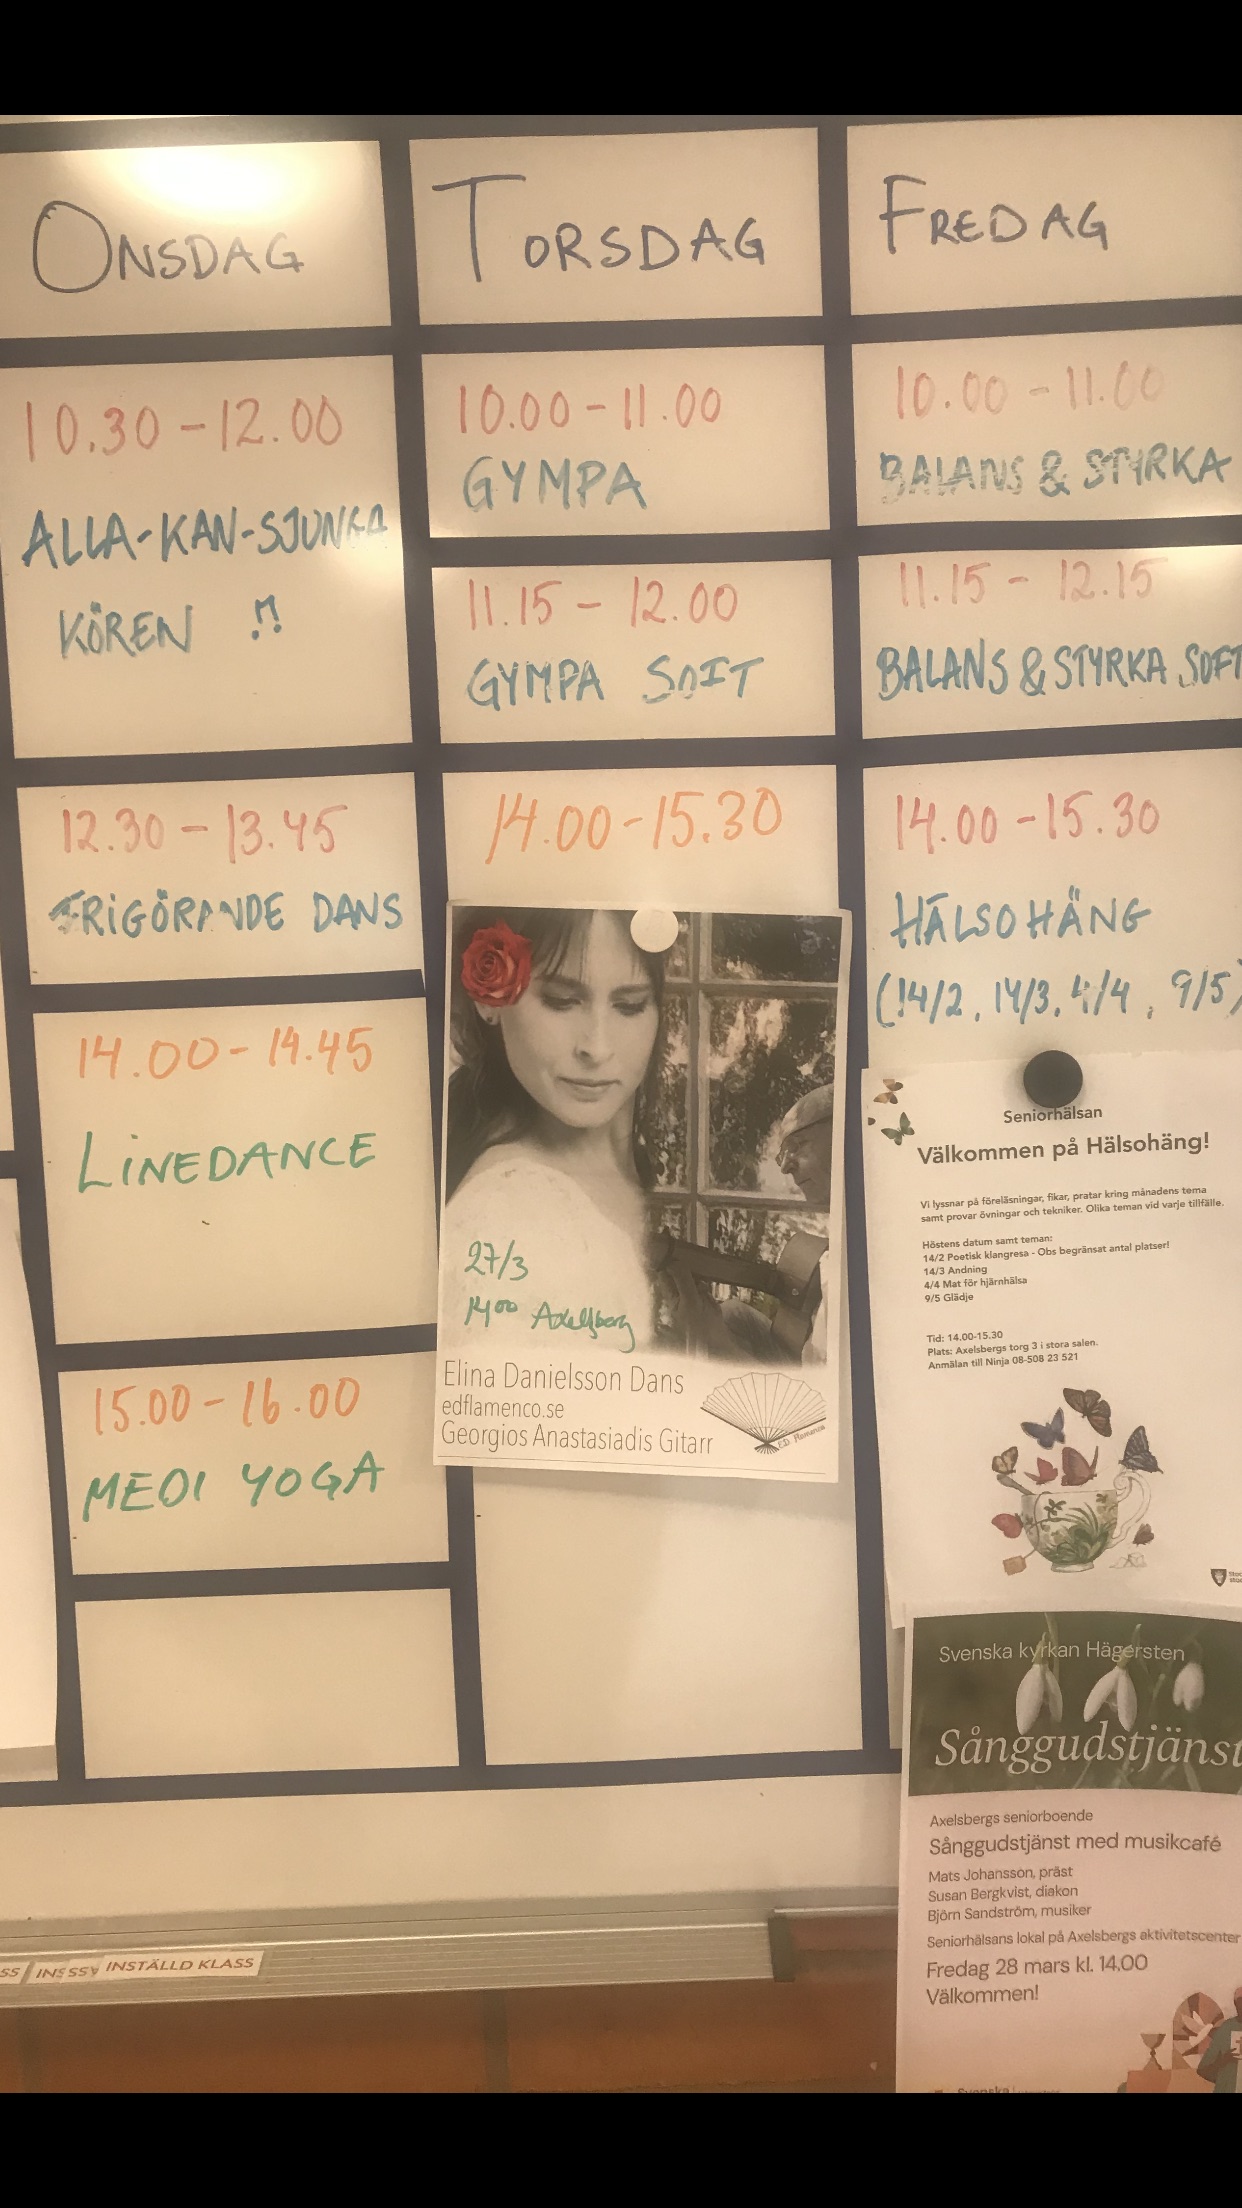 ONSDAG
10.30 - 12.00
ALLA-KAN-SJUNGA
KÖREN
12.30 - 13.45
FRIGÖRANDE DANS
14.00 - 14.45
LINEDANCE
15.00 - 16.00
MEDI YOGA
TORSDAG
10.00 - 11.00
GYMPA
11.15 - 12.00
GYMPA SOFT
14.00 - 15.30
27/3
14.00 Axelsberg
Elina Danielsson Dans
edflamenco.se
Georgios Anastasiadis Gitarr
ED Flamenco
FREDAG
10.00 - 11.00
BALANS & STYRKA
11.15 - 12.15
BALANS & STYRKA SOFT
14.00 - 15.30
HÄLSOHÄNG
(14/2, 14/3, 4/4, 9/5)
Seniorhälsan
Välkommen på Hälsohäng!
Vi lyssnar på föreläsningar, fikar, pratar kring månadens tema
samt provar övningar och tekniker. Olika teman vid varje tillfälle.
Höstens datum samt teman:
14/2 Poetisk klangresa - Obs begränsat antal platser!
14/3 Andning
4/4 Mat för hjärnhälsa
9/5 Glädje
Tid: 14.00-15.30
Plats: Axelsbergs torg 3 i stora salen.
Anmälan till Ninja 08-508 23 521
Svenska kyrkan Hägersten
Sånggudstjänst
Axelsbergs seniorboende
Sånggudstjänst med musikcafé
Mats Johansson, präst
Susan Bergkvist, diakon
Björn Sandström, musiker
Seniorhälsans lokal på Axelsbergs aktivitetscenter
Fredag 28 mars kl. 14.00
Välkommen!
Svenska
INSTÄLLD KLASS